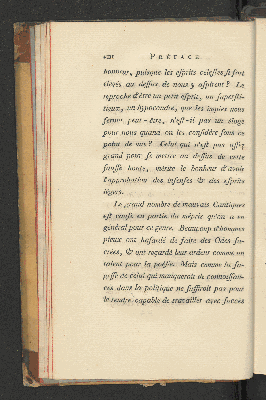 PRÉFACE
honneur, puisque les esprits celestes se sont
élevés au dessus de nous y aspirent? Le
reproche d'être un petit esprit, un supersti-
tieux, un hypocondre, que les impies nous
feront peut-être, n'est-il pas un éloge
pour nous quand on les considére sous ce
point de vue? Celui qui n'est pas assez
grand pour se mettre au dessus de cette
fausse honte, mérite le bonheur d'avoir
l'approbation des insensés & des esprits
légers.
Le grand nombre de mauvais Cantiques
est cause en partie du mépris qu'on a en
général pour ce genre. Beaucoup d'hommes
pieux ont hasardé de faire des Odes sa-
crées, & ont regardé leur ardeur comme un
talent pour la poësie. Mais comme la sa-
gesse de celui qui manqueroit de connoissan-
ces dans la politique ne suffiroit pas pour
le rendre capable de travailler avec succès